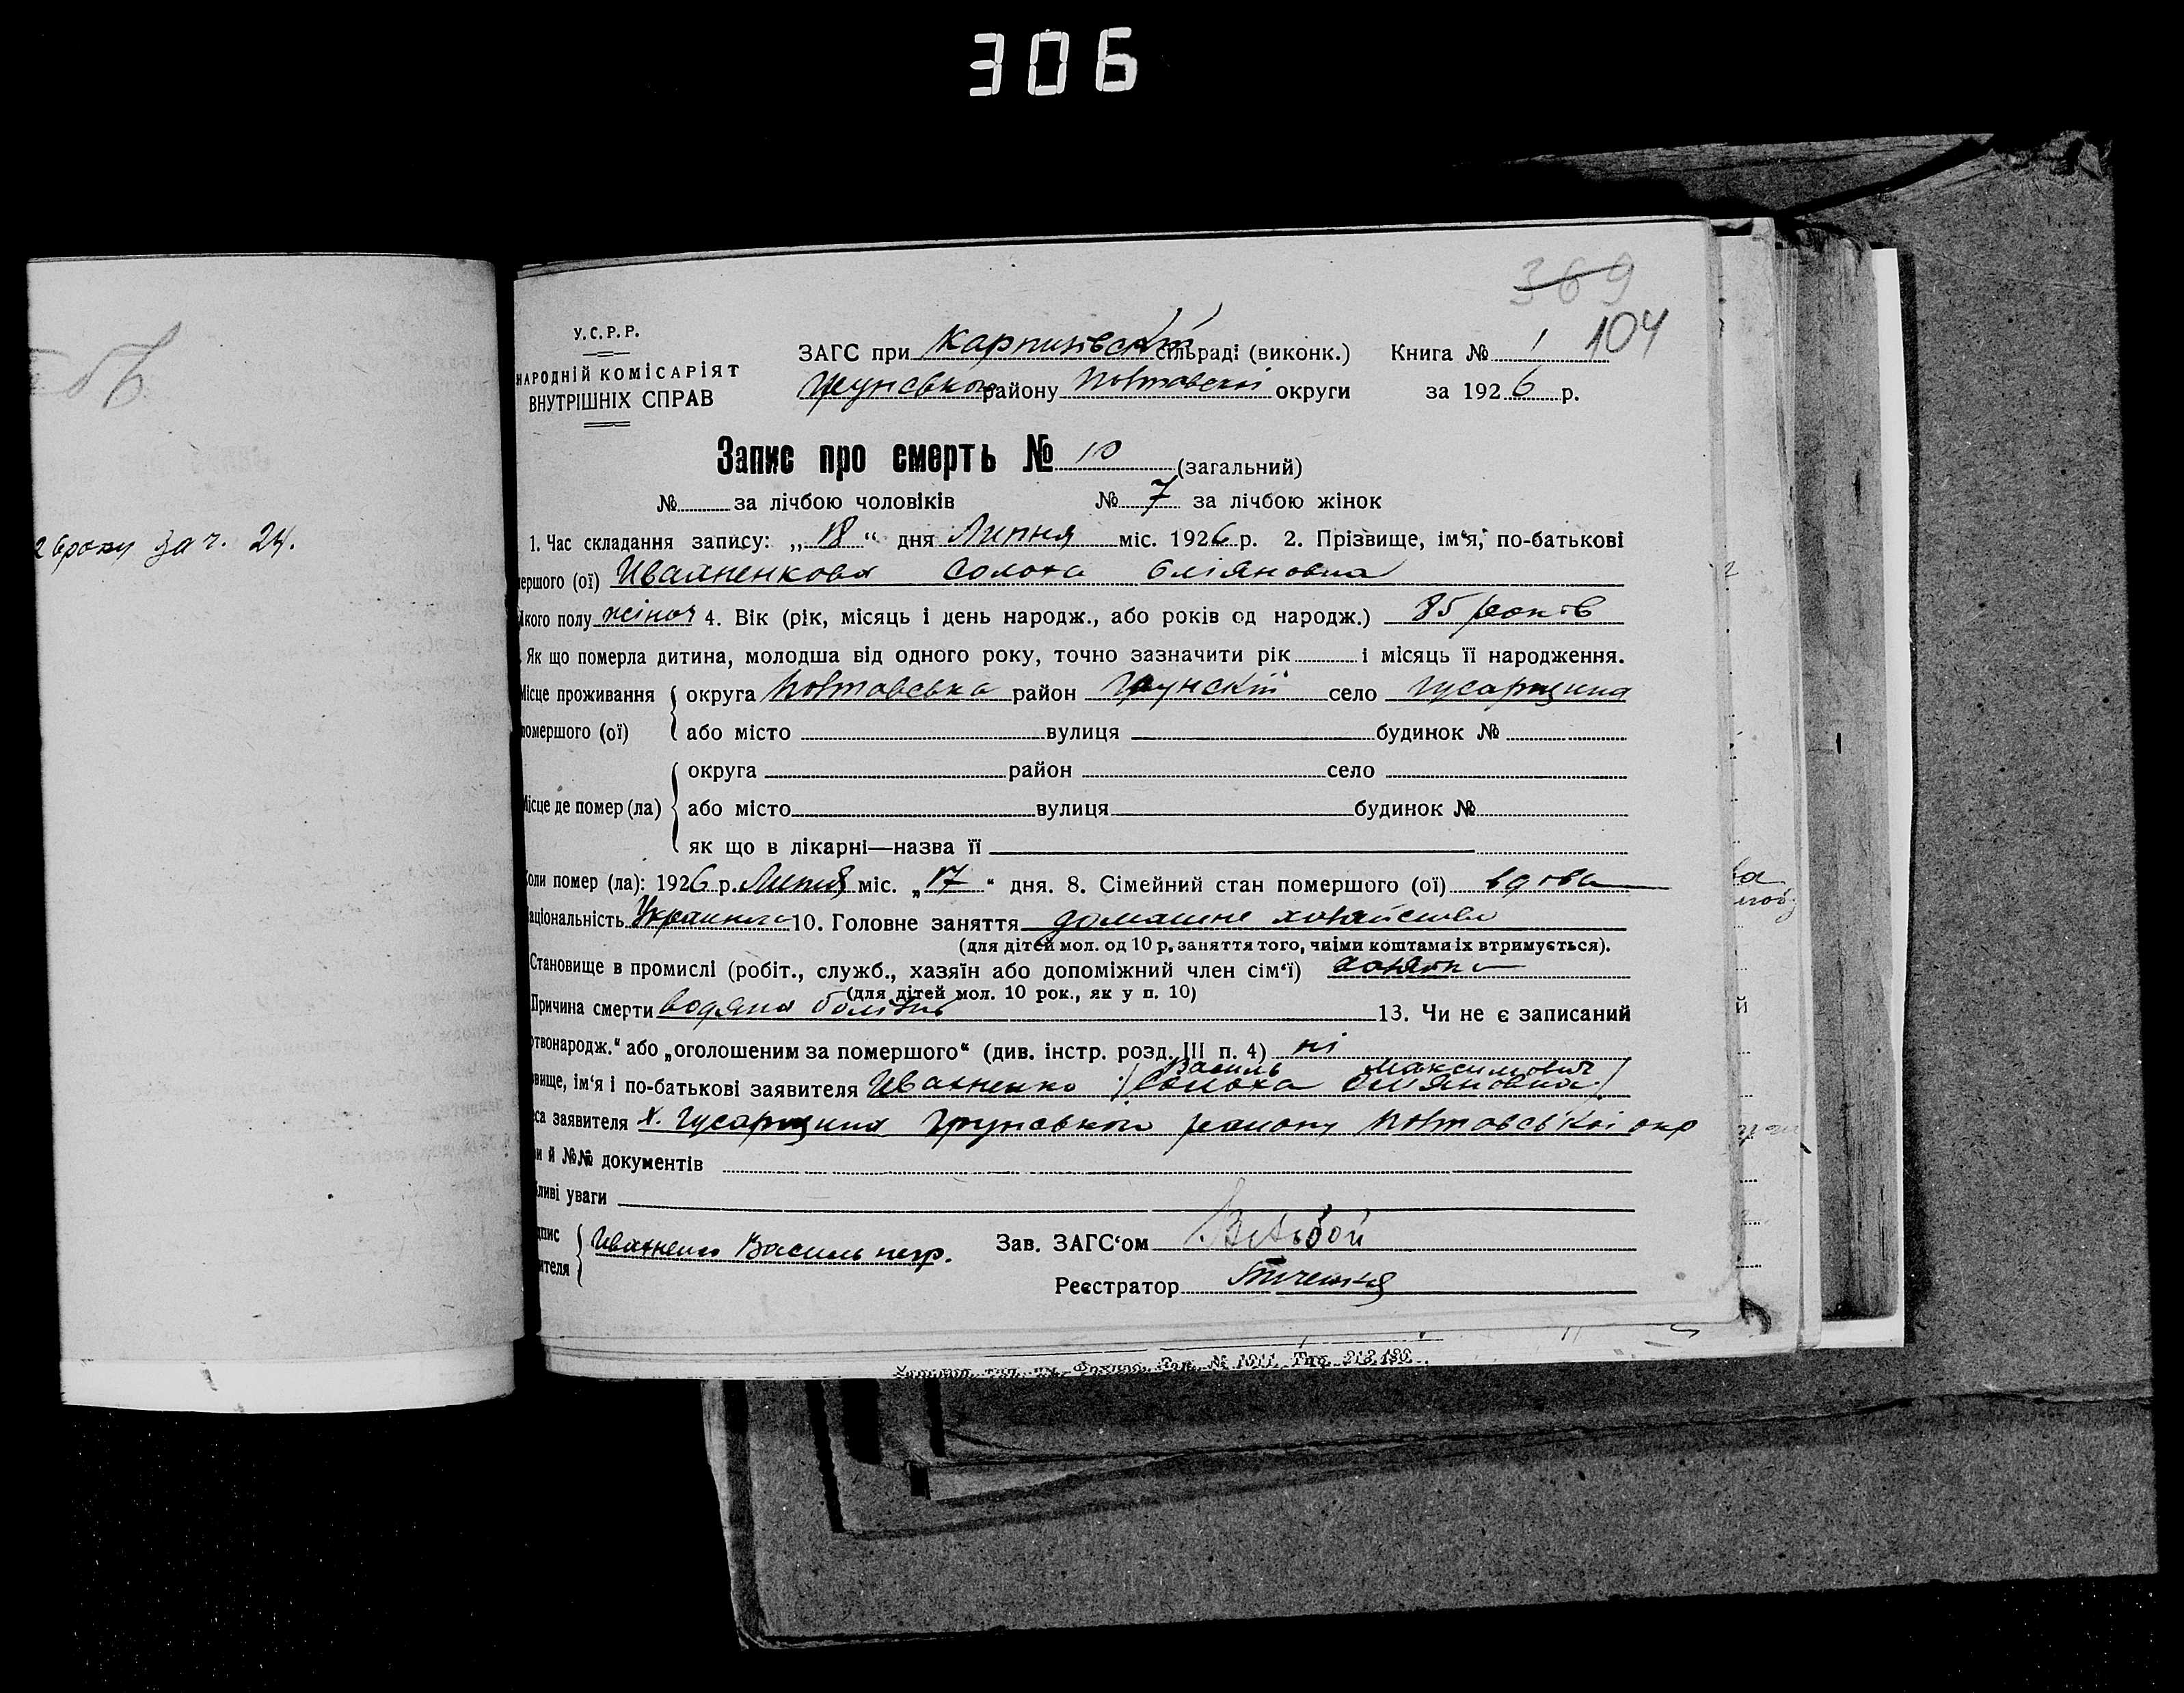 306
369
104
У.С.Р.Р.
НАРОДНІЙ КОМІСАРІЯТ
ВНУТРІШНІХ СПРАВ
ЗАГС при Карпилівскій сільраді (виконк.) Книга № 1
Грунського району Полтавскої округи за 1926 р.
Запис про смерть № 10 (загальний)
№ за лічбою чоловіків № 7 за лічбою жінок
1. Час складання запису: „18“ дня Липня міс. 1926 р. 2. Прізвище, ім‘я, по-батькові
мершого (ої) Ивахненкова Солоха Оміяновна
якого полу жіноч 4. Вік (рік, місяць і день народж., або років од народж.) 85 років
Як що померла дитина, молодша від одного року, точно зазначити рік і місяць її народження.
Місце проживання округа Полтавська район Грунскій село Гусарщина
помершого (ої) або місто вулиця будинок №
округа район село
Місце де помер (ла) або місто вулиця будинок №
як що в лікарні—назва її
Коли помер (ла): 1926 р. Липня міс. „17“ дня. 8. Сімейний стан помершого (ої) вдова
Національність 10. Головне заняття домашнє
(для дітей мол. од 10 р. заняття того, чиїми коштами їх втримується).
Становище в промислі (робіт., служб., хазяїн або допоміжний член сім‘ї)
(для дітей мол. 10 рок., як у п. 10)
Причина смерти водяна болізнь 13. Чи не є записаний
ртвонародж.“ або „оголошеним за помершого“ (див. інстр. розд. III п. 4) ні
Василь Максимович
вище, ім‘я і по-батькові заявителя Ивахненко (Солоха Оміяновна)
са заявителя х. Гусарщина Грунського району Полтавської окр
и й №№ документів
бливі уваги
дпис Ивахненко Василь Зав. ЗАГС‘ом
ителя
Реєстратор
6року за ч. 24.